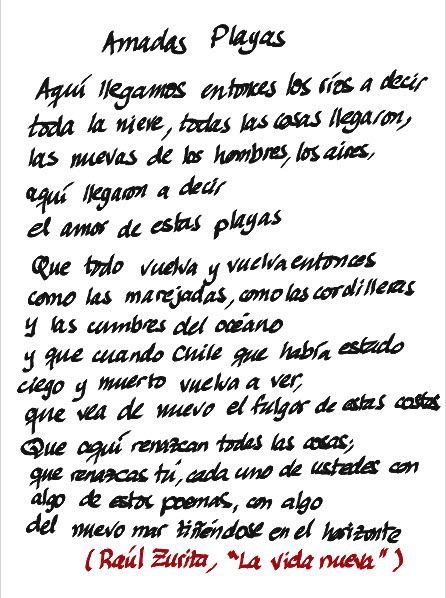 Amadas Playas
Aquí llegamos entonces los ríos a decir
toda la nieve, todas las cosas llegaron,
las nuevas de los hombres, los aires,
aquí llegaron a decir
el amor de estas playas
Que todo vuelva y vuelva entonces
como las marejadas, como las cordilleras
y las cumbres del océano
y que cuando Chile que había estado
ciego y muerto vuelva a ver,
que vea de nuevo el fulgor de estas costas
Que aquí renazcan todas las cosas;
que renazcas tú, cada uno de ustedes con
algo de estos poemas, con algo
del nuevo mar tiñéndose en el horizonte
(Raúl Zurita, "La vida nueva")